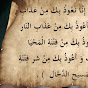 إِنَّا نَعُوذُ بِكَ مِنْ عَذَابِ
أَعُوذُ بِكَ مِنْ عَذَابِ النَّارِ
أَعُوذُ بِكَ مِنْ فِتْنَةِ الْمَحْيَا
وَ أَعُوذُ بِكَ مِنْ شَرِّ فِتْنَةِ
الْمَسِيحِ الدَّجَّالِ